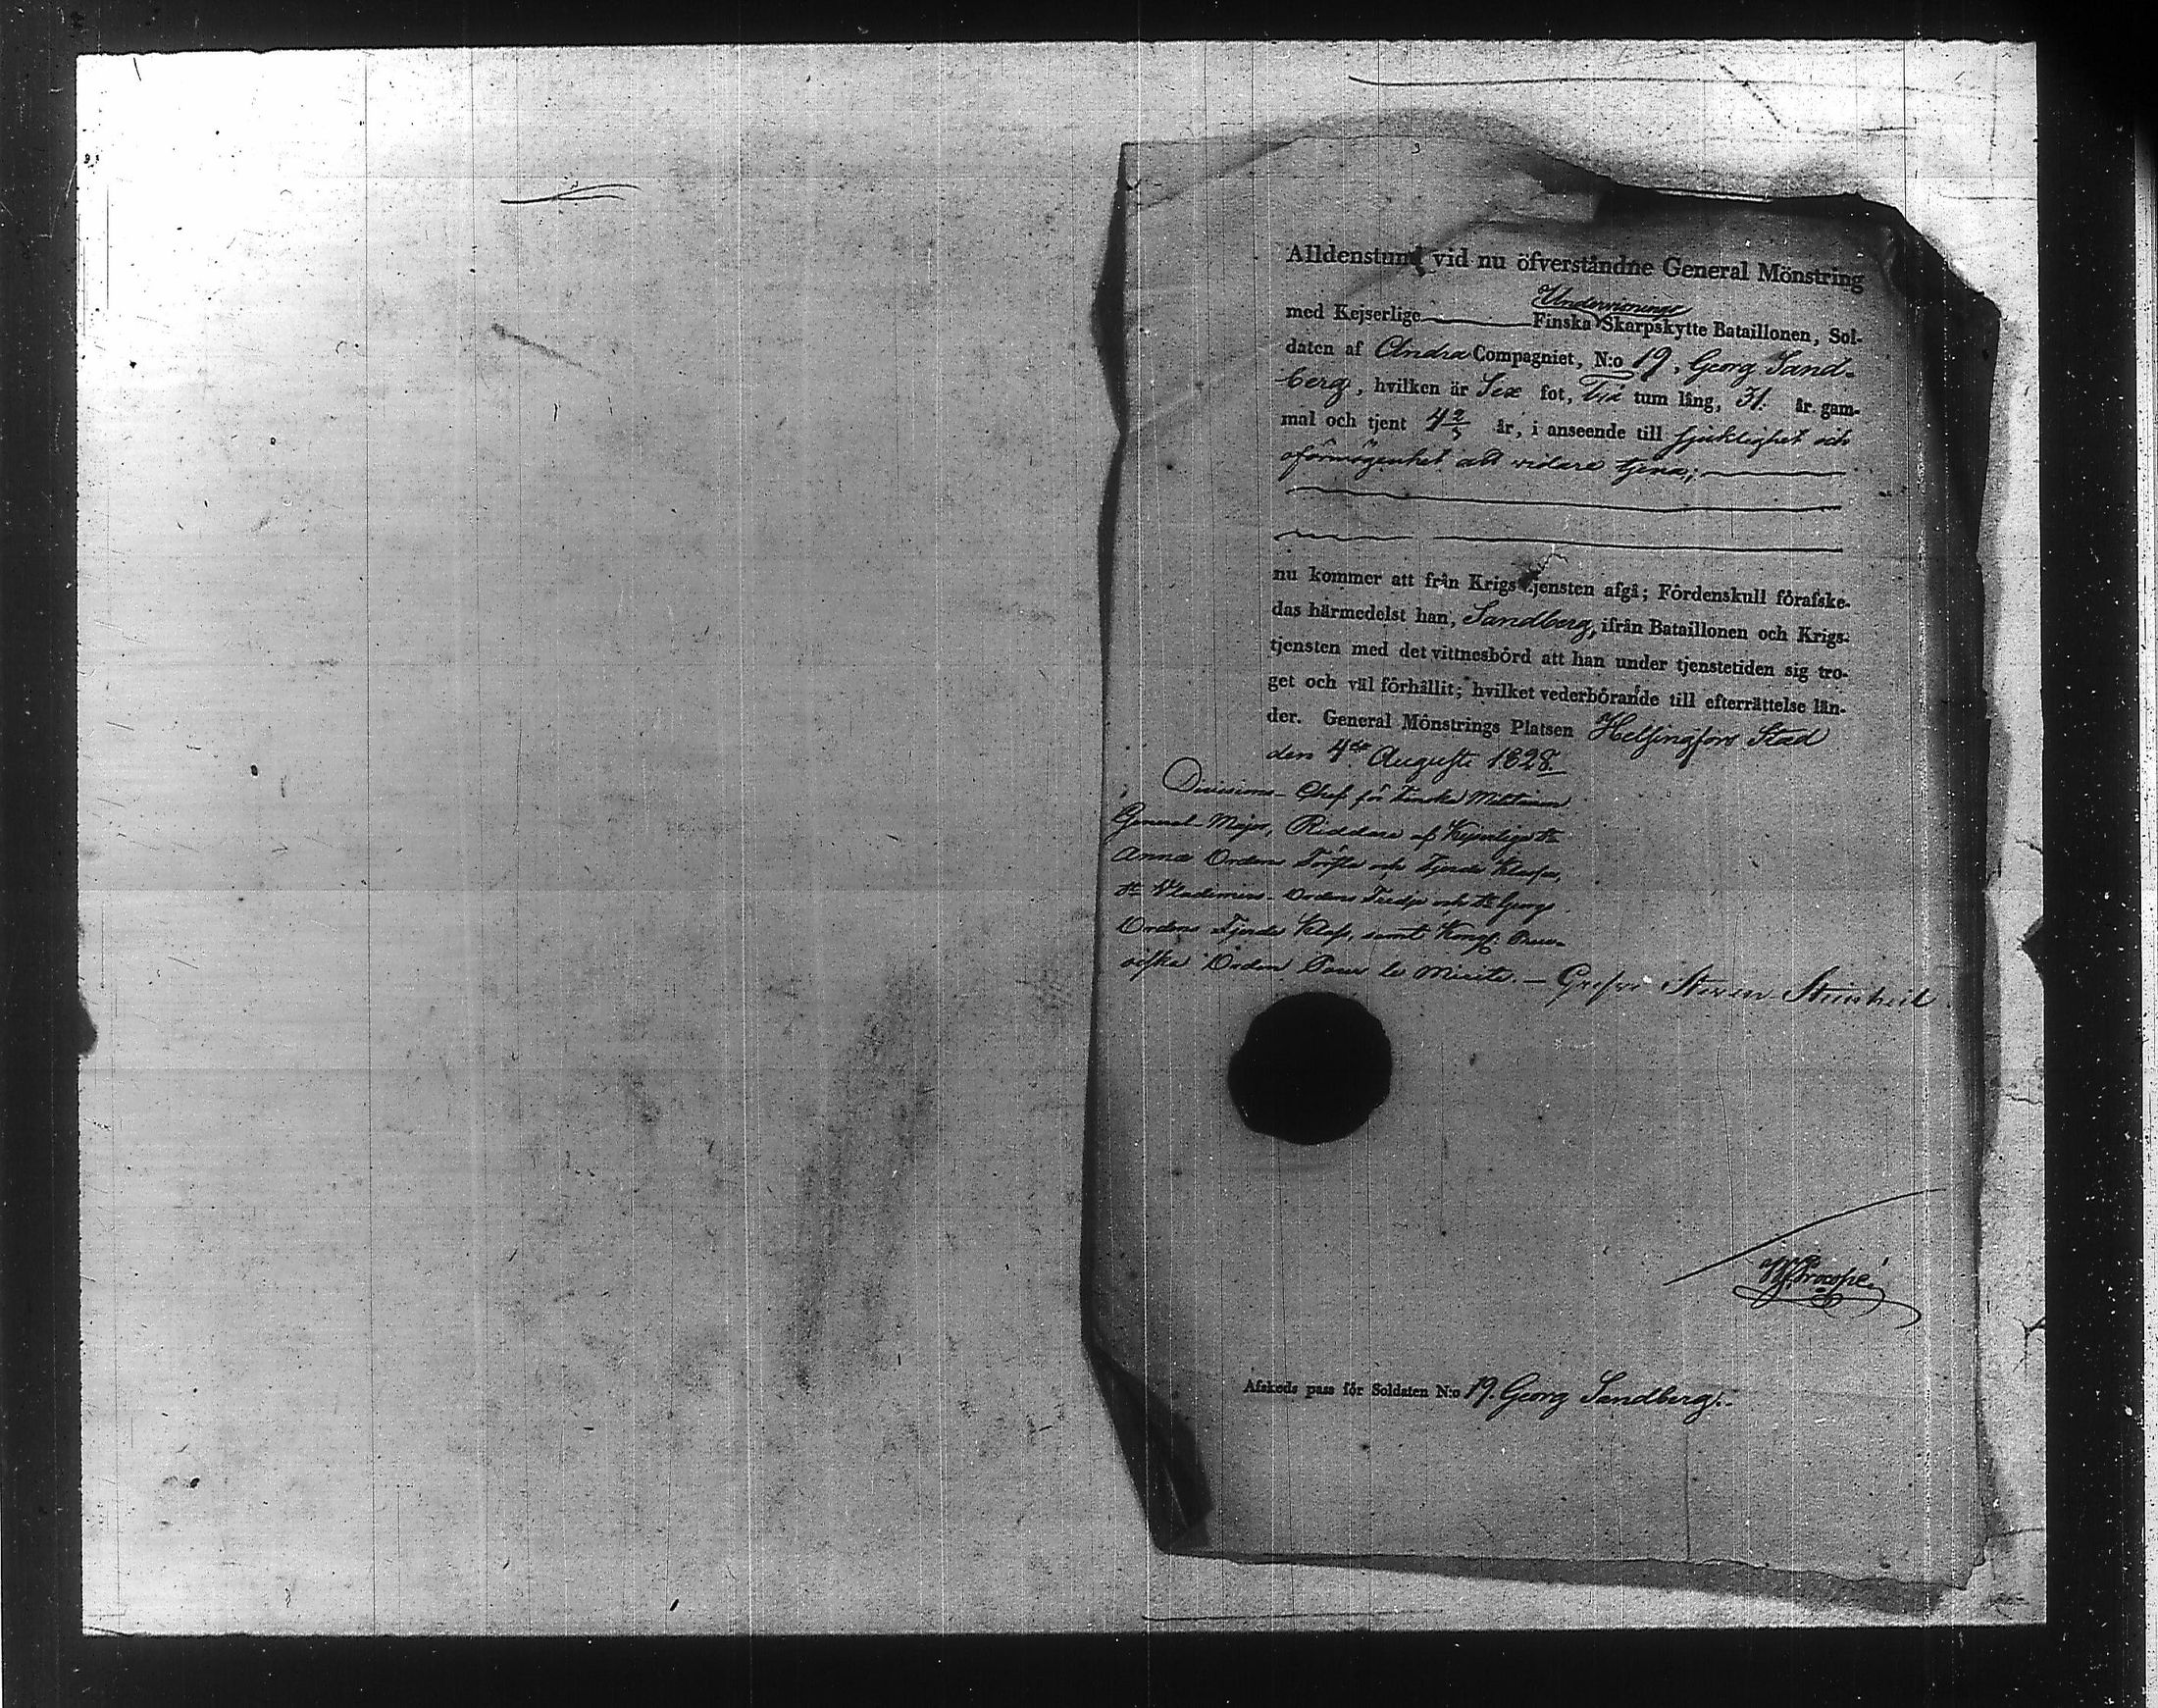 Alldenstund vid nu öfverståndne General Mönstring
Underwisnings
med Kejserlige Finska Skarpskytte Bataillonen, Sol-
daten af Andra Compagniet, N:o 19, Georg Sand-
berg, hvilken är Sex fot, tum lång, 31. år gam-
mal och tjent 4 2/3 år, i anseende till sjuklighet och
oförmögenhet att vidare tjena;
nu kommer att från Krigstjensten afgå; Fördenskull förafske-
das härmedelst han, Sandberg, ifrån Bataillonen och Krigs-
tjensten med det vittnesbörd att han under tjenstetiden sig tro-
get och väl förhållit; hvilket vederbörande till efterrättelse län-
der. General Mönstrings Platsen Helsingfors Stad
den 4de Augusti 1828.
Divisions-Chef för Finska Militairen
General-Major, Riddare af Kejserlige St.
Annæ Ordens Första och Fjerde Klasser,
St. Vladimirs-Ordens Tredje och St. Georgs
Ordens Fjerde Klass, samt Kongl. Preus-
siska Orden Pour le Merite. — Grefve Steven-Steinheil
Procopé.
Afskeds pass för Soldaten N:o 19. Georg Sandberg.